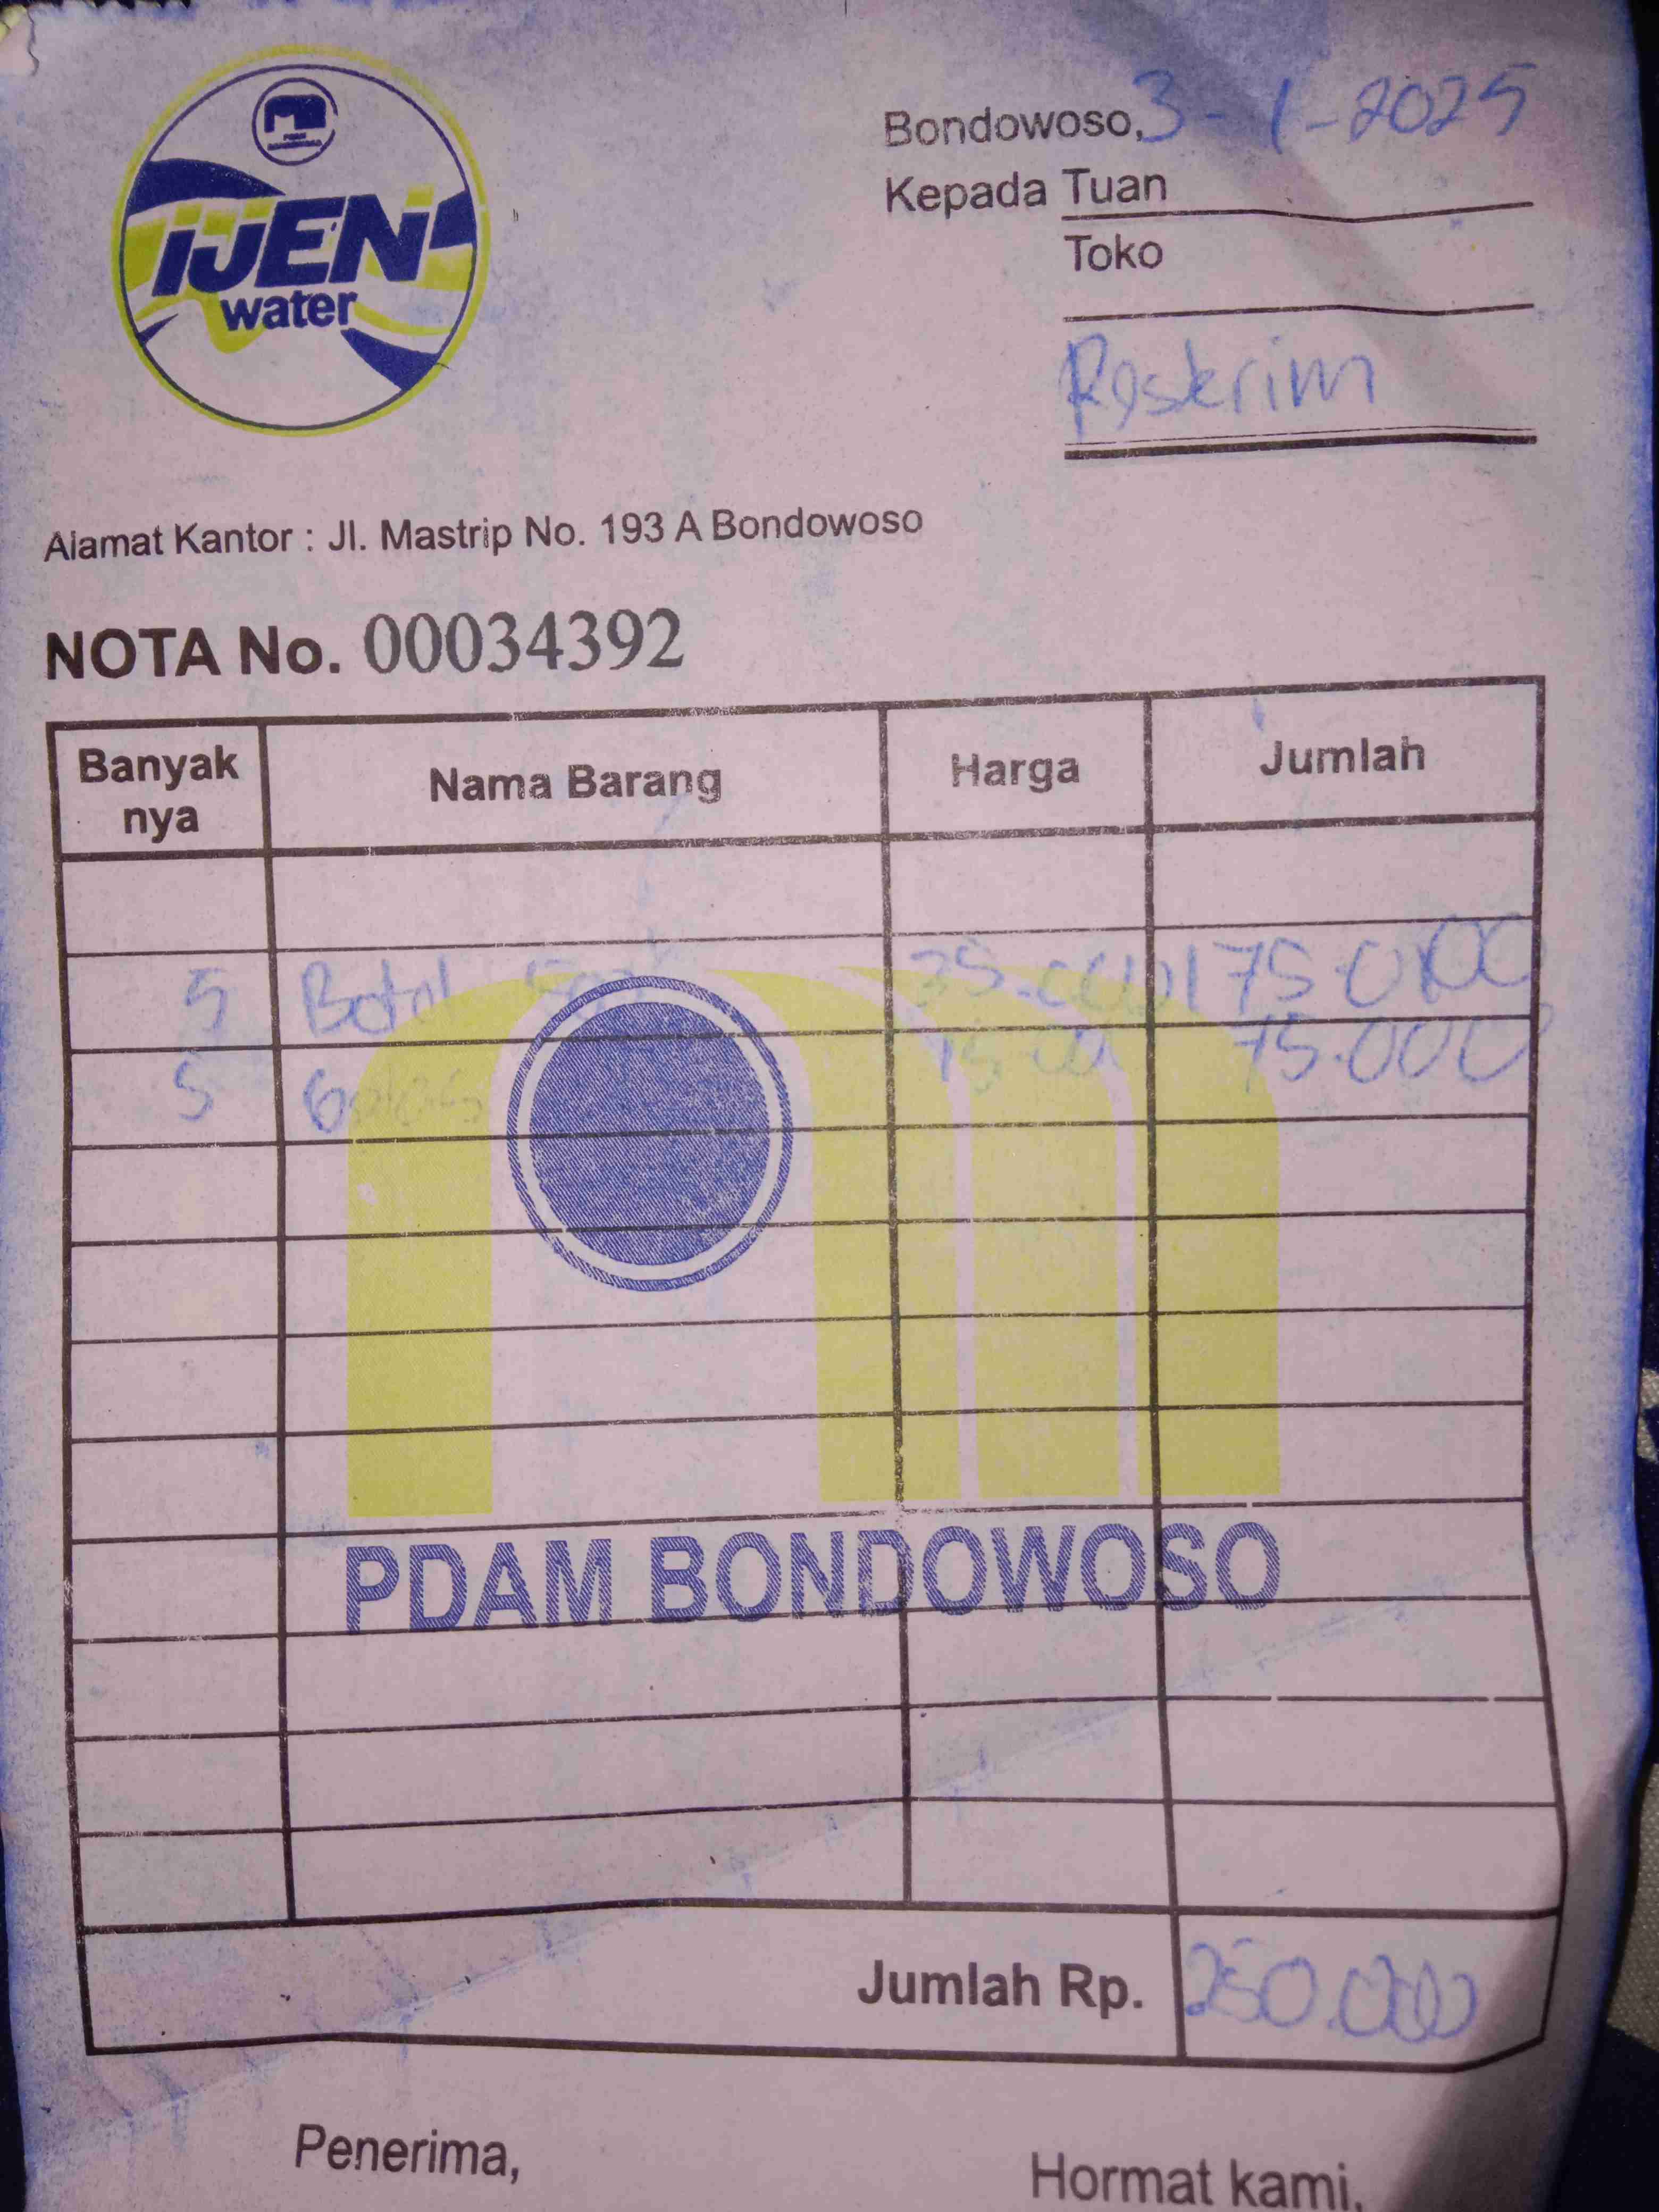 iJEN
water
Bondowoso, 3-1-2025
Kepada Tuan
Toko
Reskrim
Alamat Kantor : Jl. Mastrip No. 193 A Bondowoso
NOTA No. 00034392
Banyak nya Nama Barang Harga Jumlah
5 Botol 35.000 175.000
5 Gelas 15.000 75.000
PDAM BONDOWOSO
Jumlah Rp. 250.000
Penerima, Hormat kami,